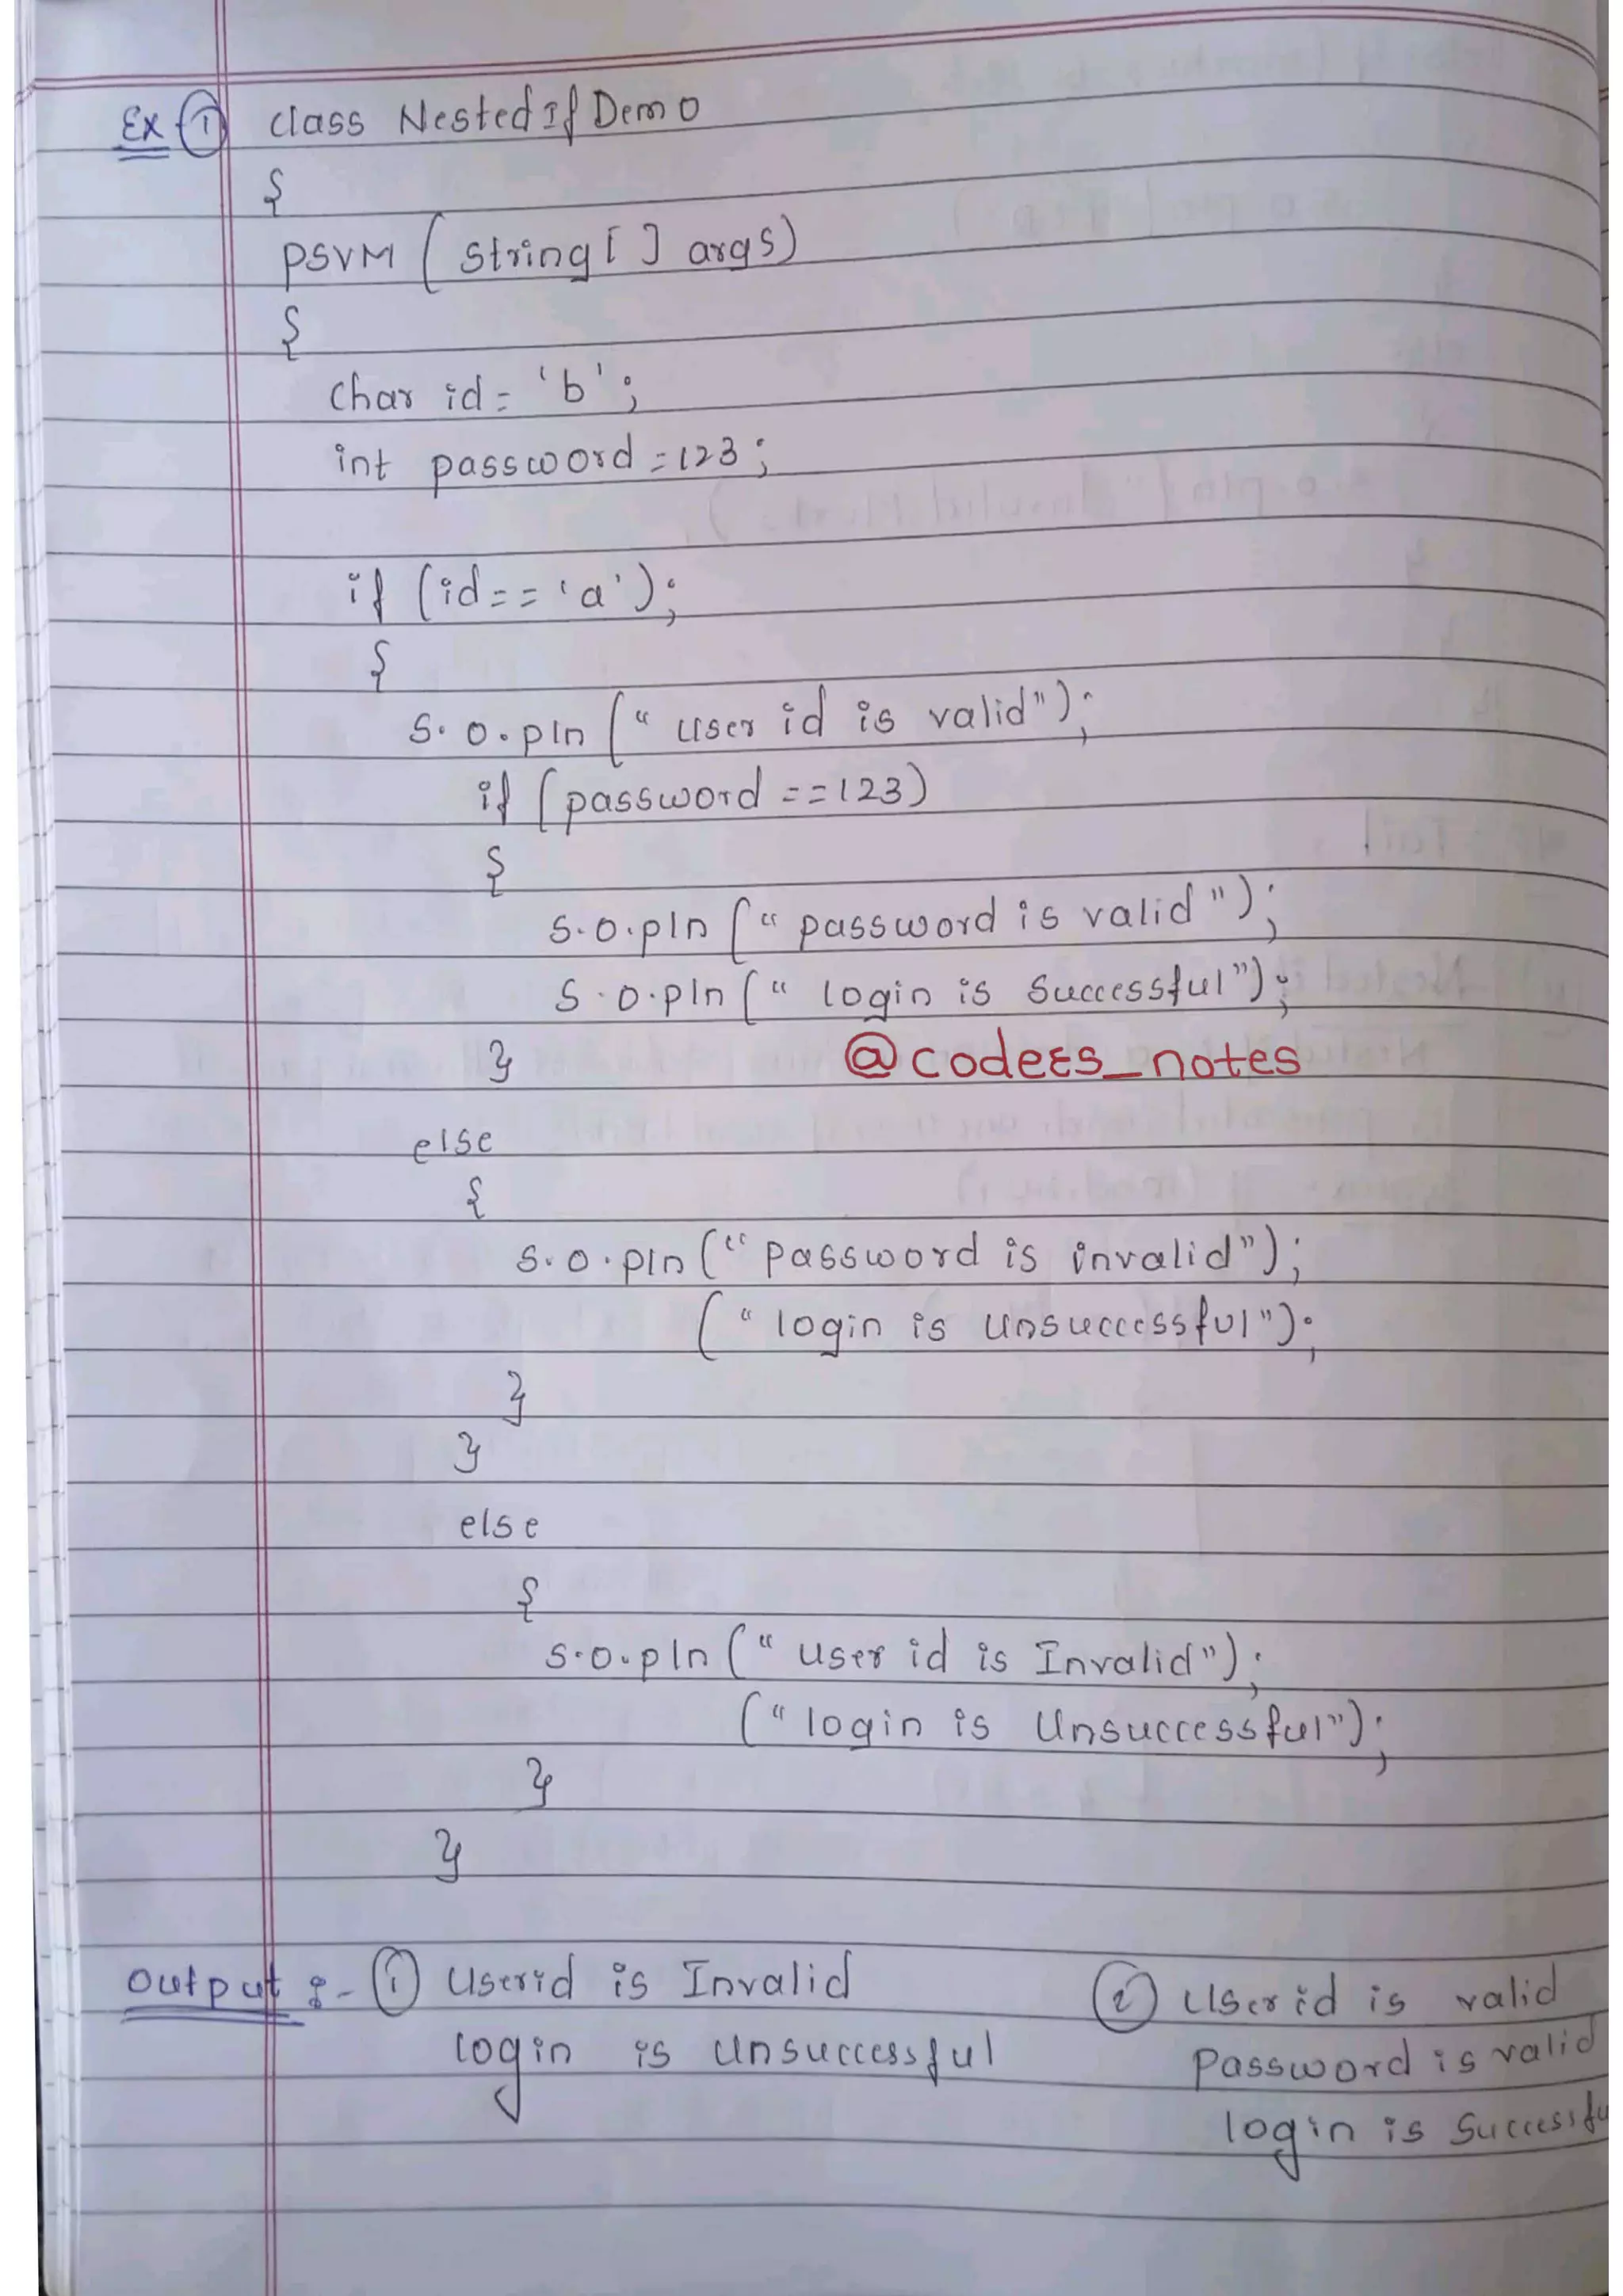 Ex ① class NestedIfDemo
{
PSVM ( String [ ] args)
{
char id = 'b' ;
int password = 123 ;
if (id == 'a') ;
{
S.O.pln (" User id is valid") ;
if (password == 123)
{
S.O.pln (" password is valid ") ;
S.O.pln (" login is Successful") ;
}
@codees_notes
else
{
S.O.pln (" Password is invalid") ;
(" login is Unsuccessful") ;
}
}
else
{
S.O.pln (" User id is Invalid") ;
(" login is Unsuccessful") ;
}
}
Output :- ① Userid is Invalid
login is Unsuccessful
② User id is valid
Password is valid
login is Successfu